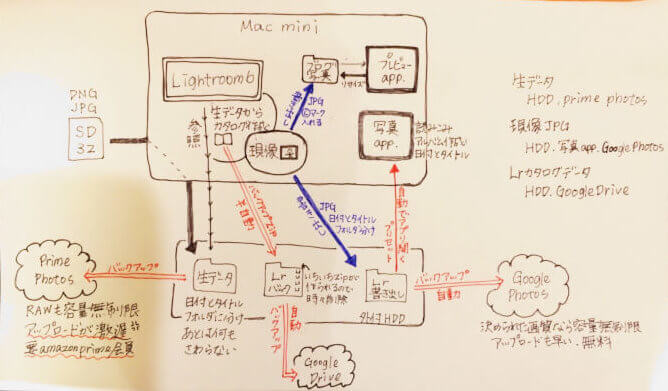 Mac mini
Lightroom6
ブログ
写真
プレビュー
app.
リサイズ
DNG
JPG
SD
32
参照
生データから
カタログ作成
現像
JPG
©マーク
入れる
写真
app.
読みこみ
アルバム作成
日付とタイトル
バックアップzip
半自動
JPG
日付とタイトル
フォルダ分け
自動でアプリ開く
プリセット
生データ
HDD.prime photos
現像JPG
HDD.写真app.GooglePhotos
Lrカタログデータ
HDD.GoogleDrive
Prime
Photos
バックアップ
RAWも容量無制限
アップロードが激遅
要amazonprime会員
生データ
日付とタイトル
フォルダに分け
あとは何も
さわらない
Lr
バック
いちいちzipが
作られるので
時々削除
Lr
書き出し
外付HDD
バックアップ
自動
バックアップ
自動
Google
Drive
Google
Photos
決められた画質なら容量無制限
アップロードも早い.無料